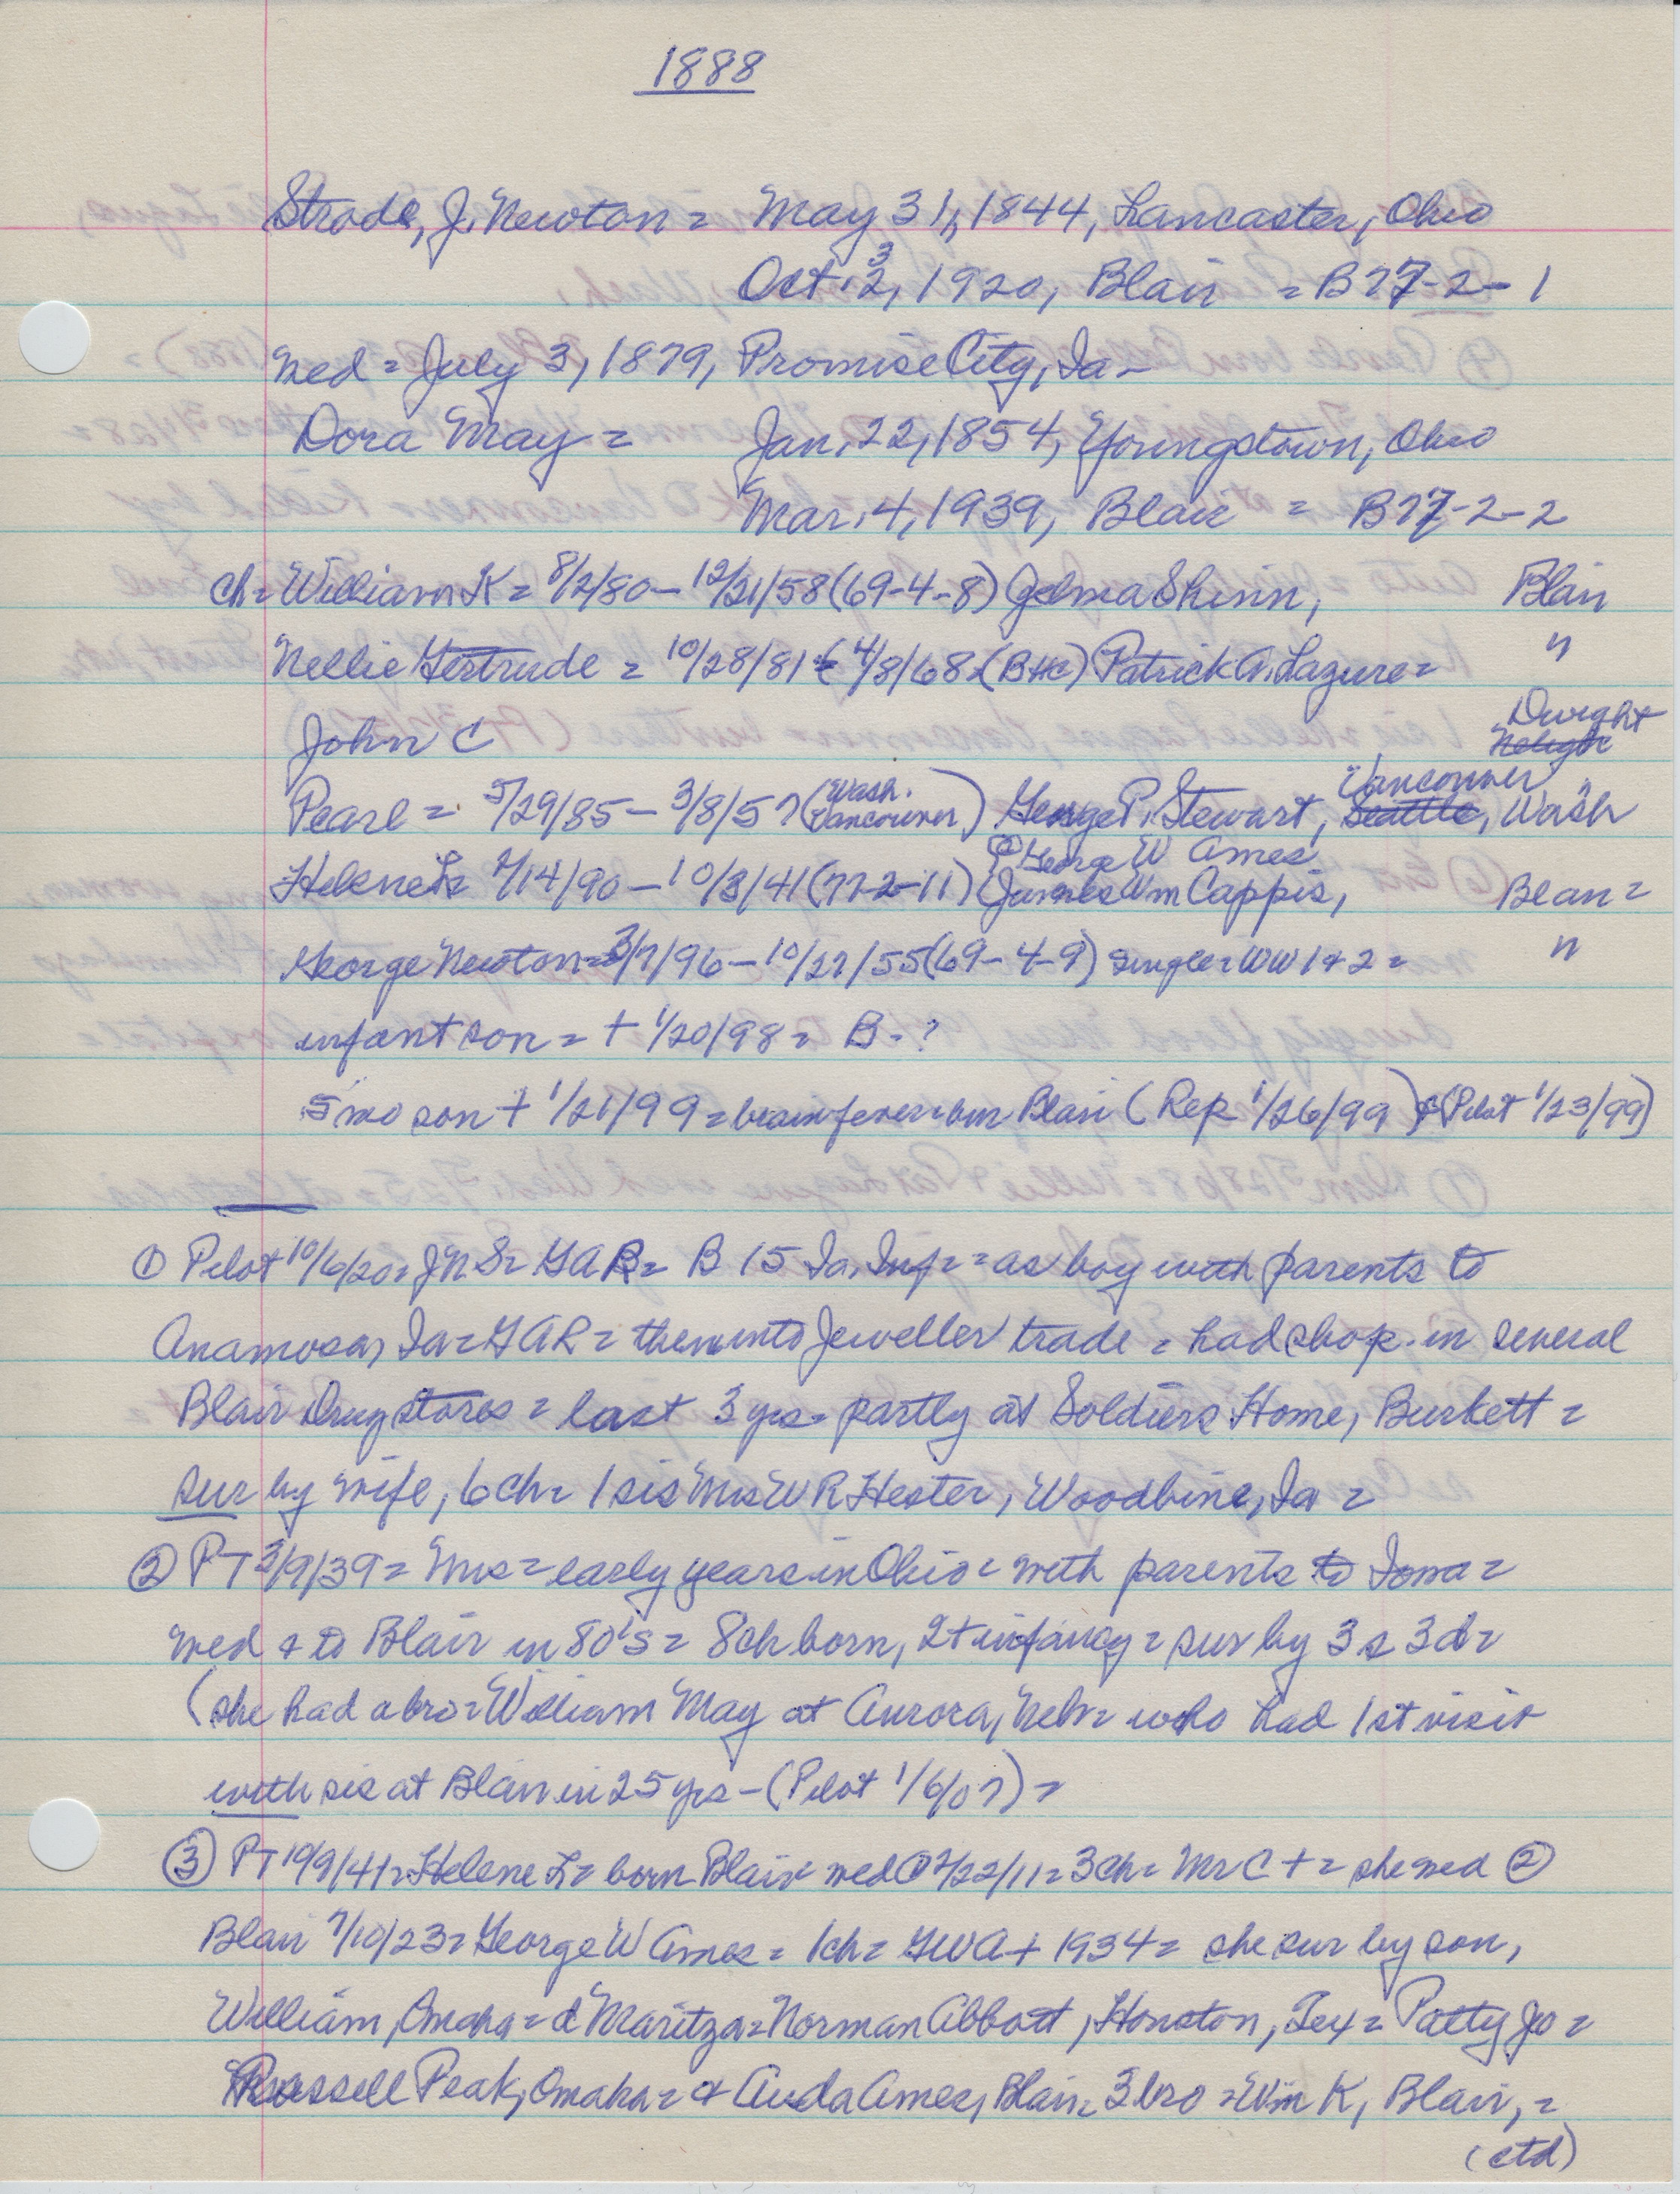 1888
Strode, J. Newton = May 31, 1844, Lancaster, Ohio
Oct. 2, 3 1920, Blair = B77-2-1
wed = July 3, 1879, Promise City, Ia -
Dora May = Jan. 22, 1854, Youngstown, Ohio
Mar. 4, 1939, Blair = B77-2-2
ch = William K = 8/2/80 - 12/21/58 (69-4-8) Zelma Shinn, Blair
Nellie Gertrude = 10/28/81 - 4/8/68 (BHC) Patrick A. Lazure = "
John C Dwight Neligh
Pearl = 5/29/85 - 3/8/57 (Wash. Vancouver) George P. Stewart, Vancouver Seattle, Wash
② George W Ames
Helene L = 7/14/90 - 10/3/41 (77-2-11) James Wm Cappis, Blair =
George Newton = 3/7/96 - 10/27/55 (69-4-9) single = WW 1 & 2 = "
infant son = + 1/20/98 = B - ?
5 mo son + 1/21/99 = brain fever = bur Blair (Rep 1/26/99) & (Pilot 1/23/99)
① Pilot 10/6/20 = JNS = GAR = B 15 Ia. Inf = = as boy with parents to
Anamosa, Ia = GAR = then into Jeweller trade = had shop in several
Blair Drug stores = last 3 yrs = partly at Soldiers Home, Burkett =
sur by wife, 6 ch = 1 sis Mrs W R Hester, Woodbine, Ia =
② PT 3/9/39 = Mrs = early years in Ohio = with parents to Iowa =
wed & to Blair in 80's = 8 ch born, 2 + infancy = sur by 3 s 3 d =
(she had a bro = William May at Aurora, Neb = who had 1st visit
with sis at Blair in 25 yrs - (Pilot 1/6/07) =
③ PT 10/9/41 = Helene L = born Blair = wed ① 2/22/11 = 3 ch = Mr C + = she wed ②
Blair 7/10/23 = George W Ames = 1 ch = GWA + 1934 = she sur by son,
William, Omaha = d Maritza = Norman Abbott, Houston, Tex = Patty Jo =
Russell Peak, Omaha = & Auda Ames, Blair = 3 bro = Wm K, Blair, =
(ctd)